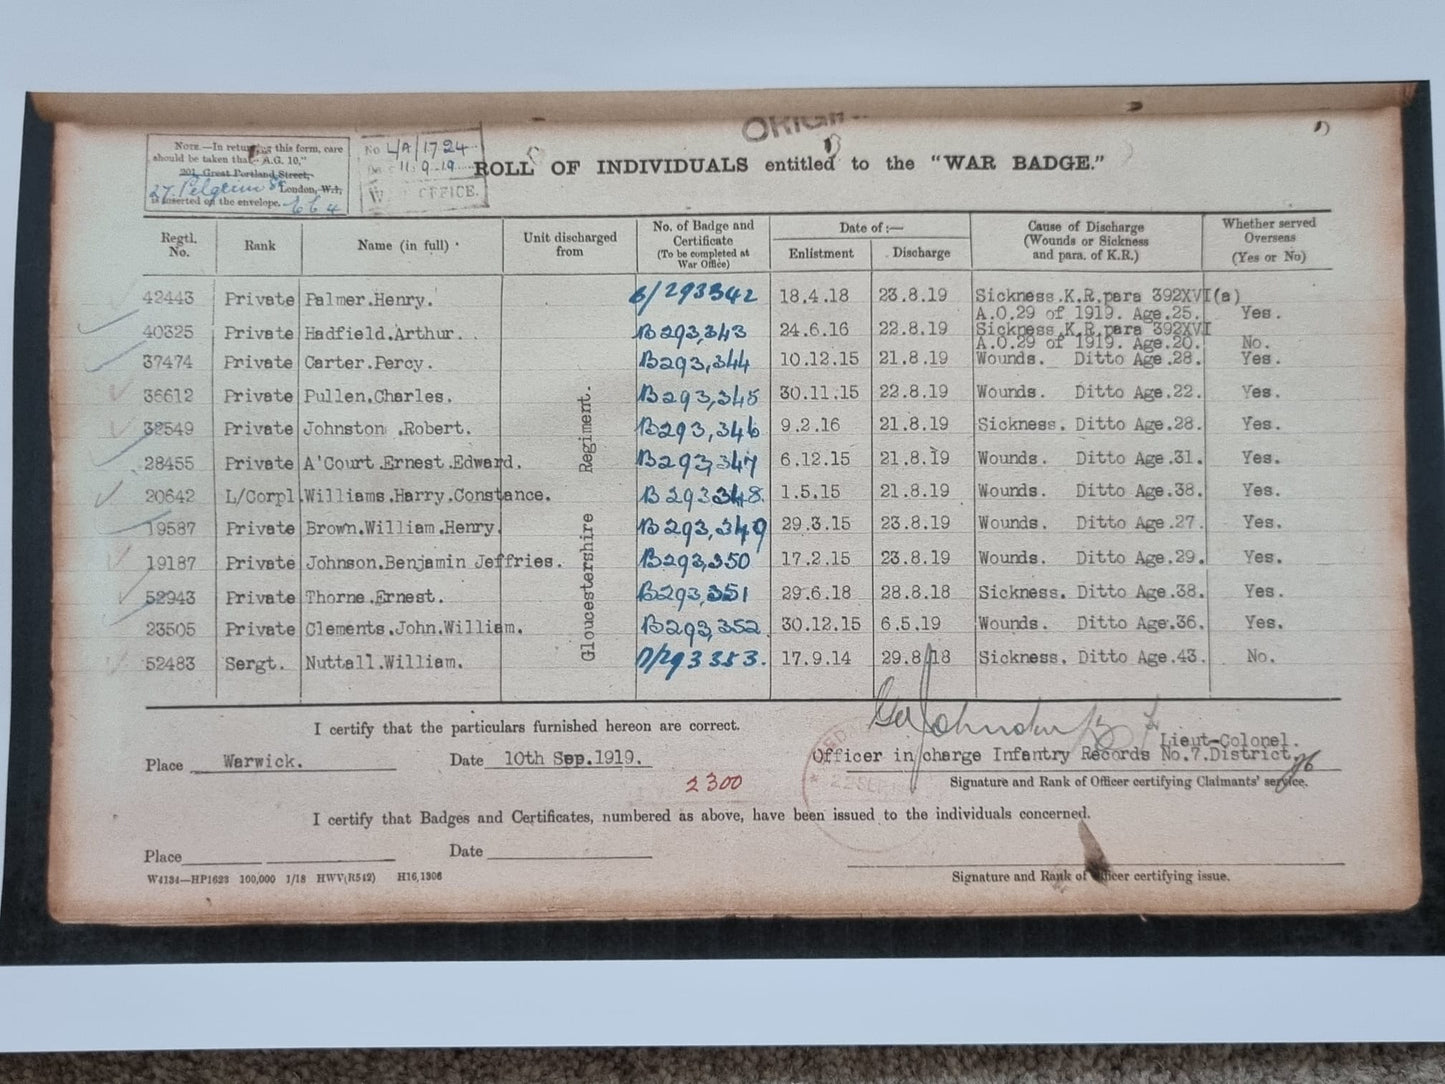 ORIGI
NOTE.—In returning this form, care
should be taken that "A.G. 10,"
201, Great Portland Street,
27, Pilgrim St London, W.1,
is inserted on the envelope. E C 4
No 4A/1724
11.9.19
OFFICE.
ROLL OF INDIVIDUALS entitled to the "WAR BADGE."
Regtl. No. Rank Name (in full) Unit discharged from No. of Badge and Certificate (To be completed at War Office) Date of :— Enlistment Discharge Cause of Discharge (Wounds or Sickness and para. of K.R.) Whether served Overseas (Yes or No)
42443 Private Palmer.Henry. B/293342 18.4.18 23.8.19 Sickness.K.R.para 392XVI(a)
A.O.29 of 1919. Age.25. Yes.
40325 Private Hadfield.Arthur. B293,343 24.6.16 22.8.19 Sickness.K.R.para 392XVI
A.O.29 of 1919. Age.20. No.
37474 Private Carter.Percy. B293,344 10.12.15 21.8.19 Wounds. Ditto Age.28. Yes.
36612 Private Pullen.Charles. B293,345 30.11.15 22.8.19 Wounds. Ditto Age.22. Yes.
32549 Private Johnston .Robert. B293,346 9.2.16 21.8.19 Sickness. Ditto Age.28. Yes.
28455 Private A'Court.Ernest.Edward. B293,347 6.12.15 21.8.19 Wounds. Ditto Age.31. Yes.
20642 L/Corpl Williams.Harry.Constance. B293348. 1.5.15 21.8.19 Wounds. Ditto Age.38. Yes.
19587 Private Brown.William.Henry. B293,349 29.3.15 23.8.19 Wounds. Ditto Age.27. Yes.
19187 Private Johnson.Benjamin Jeffries. B293,350 17.2.15 23.8.19 Wounds. Ditto Age.29. Yes.
52943 Private Thorne.Ernest. B293,351 29.6.18 28.8.18 Sickness. Ditto Age.38. Yes.
23505 Private Clements.John.William. B293,352. 30.12.15 6.5.19 Wounds. Ditto Age.36. Yes.
52483 Sergt. Nuttall.William. B/293353. 17.9.14 29.8.18 Sickness. Ditto Age.43. No.
Gloucestershire Regiment.
I certify that the particulars furnished hereon are correct.
Lieut-Colonel.
Place Warwick. Date 10th Sep.1919. Officer in charge Infantry Records No.7.District.
2300
22 SEP
Signature and Rank of Officer certifying Claimants' service.
I certify that Badges and Certificates, numbered as above, have been issued to the individuals concerned.
Place Date
W4134—HP1623 100,000 1/18 HWV(R542) H16,1306
Signature and Rank of Officer certifying issue.